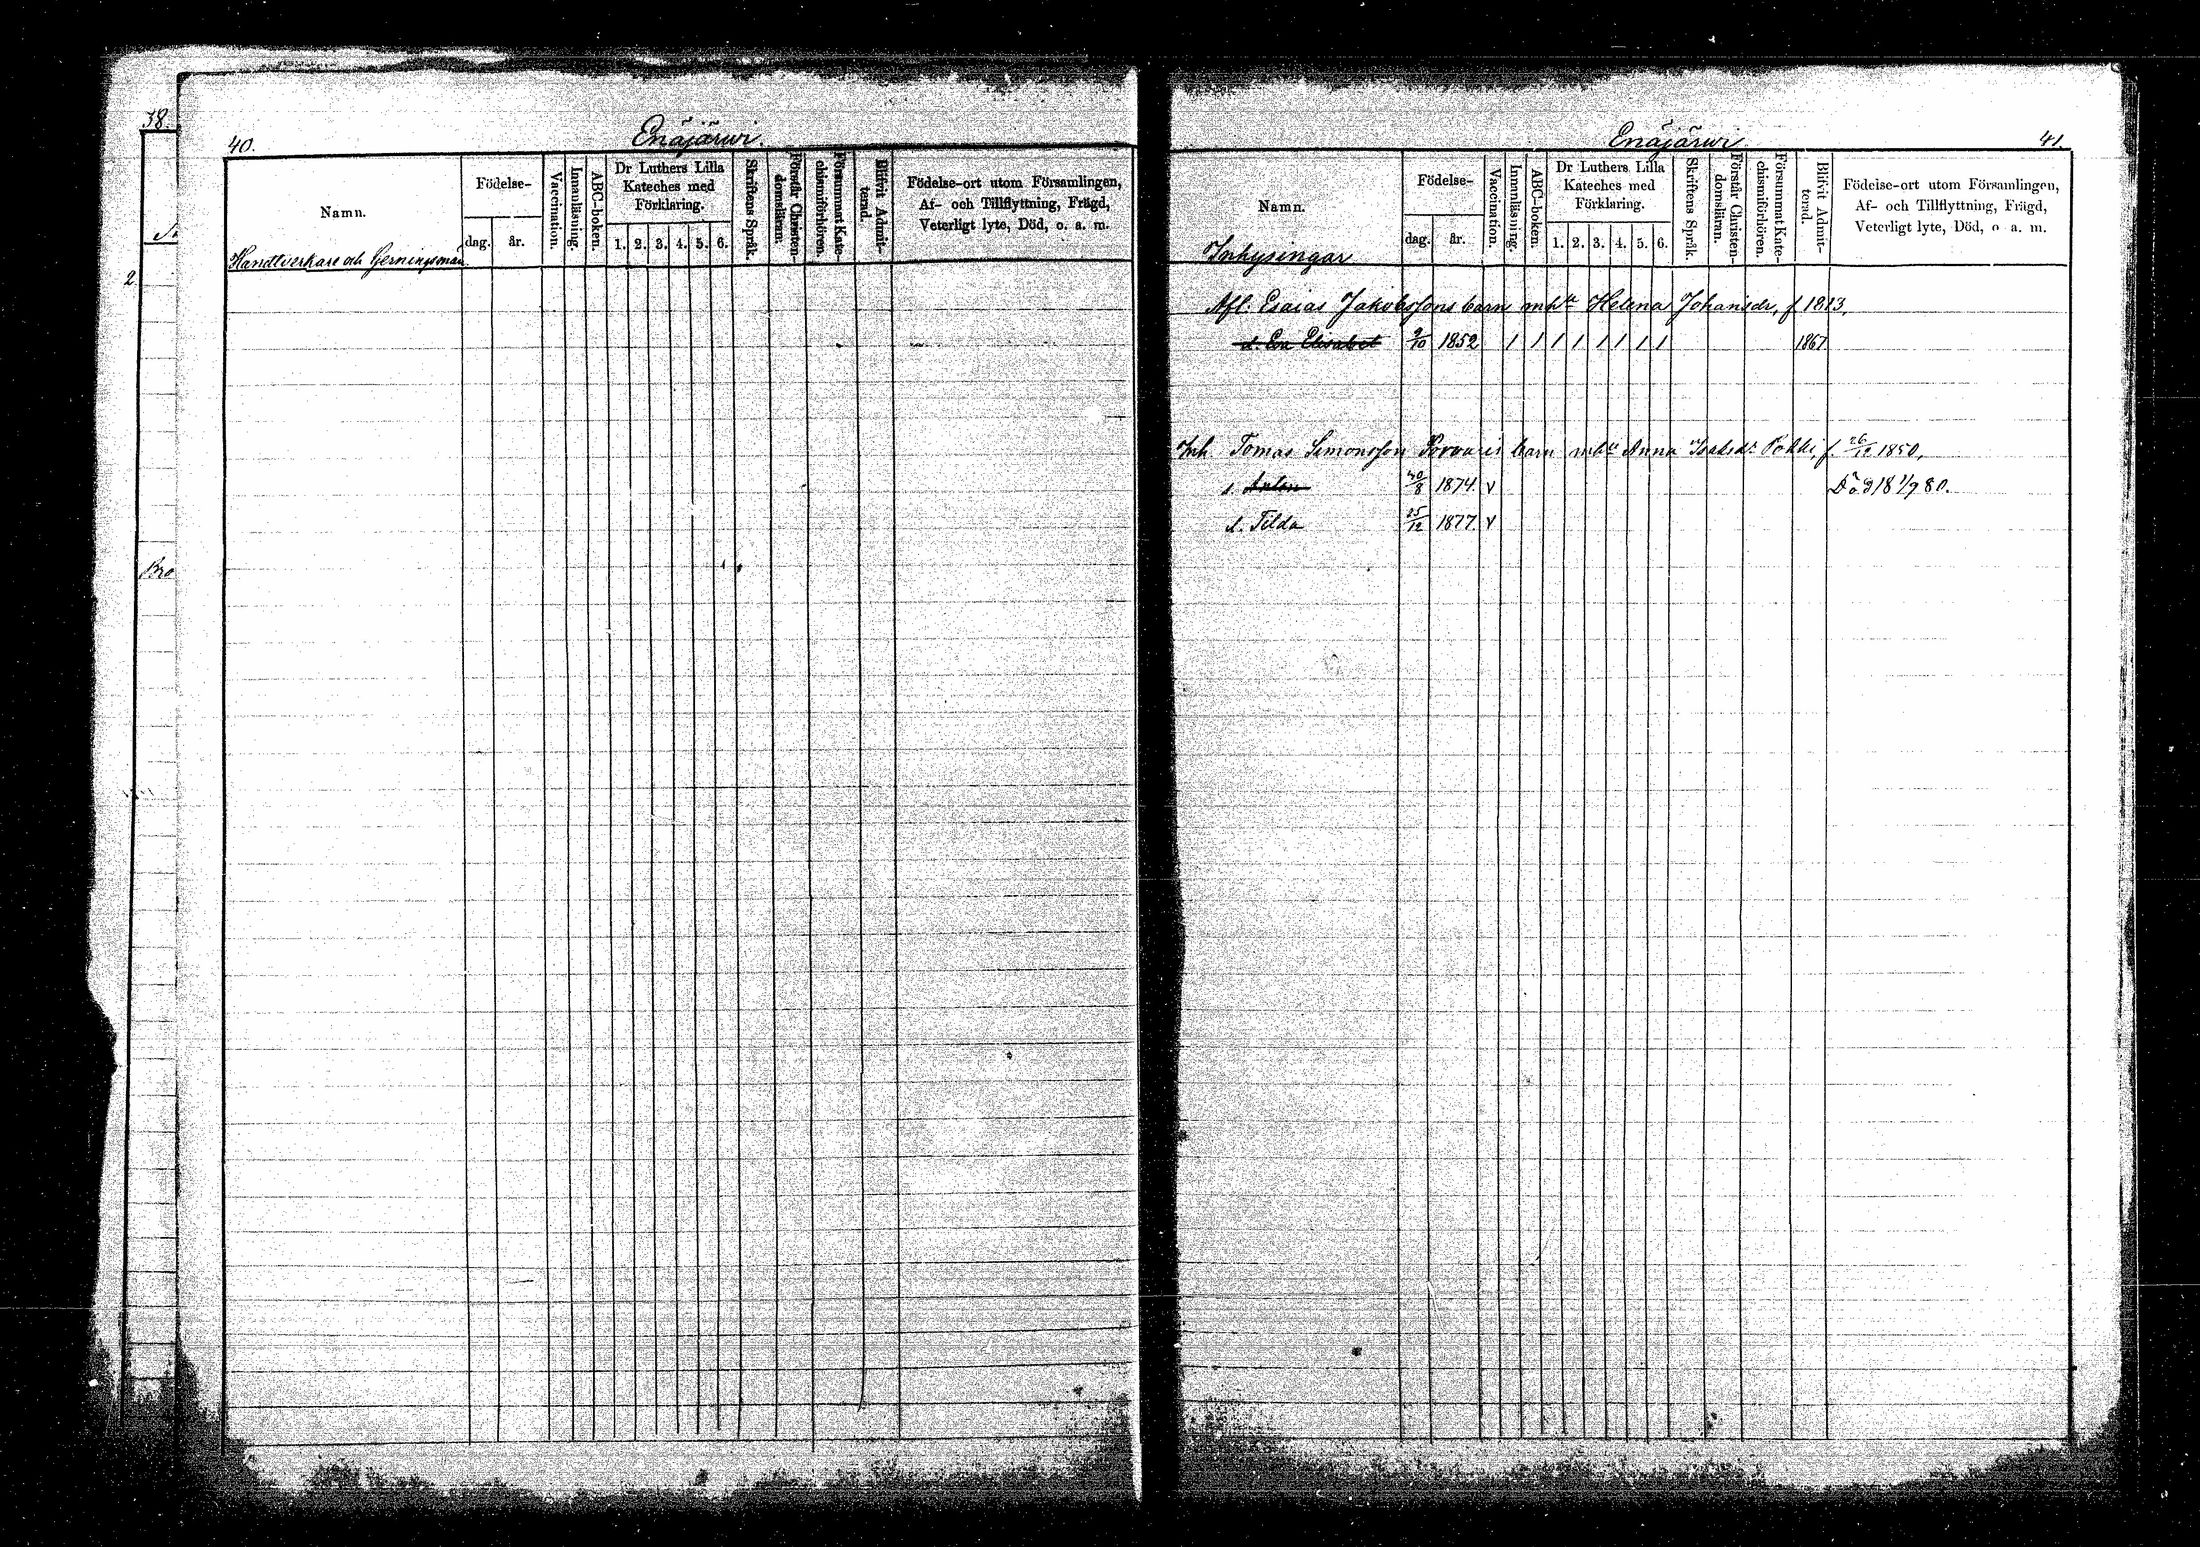 38.
2
40.
Enäjärwi.
Namn.
Födelse-
dag. år.
Vaccination.
Innanläsning.
ABC-boken.
Dr Luthers Lilla
Kateches med
Förklaring.
1. 2. 3. 4. 5. 6.
Skriftens Språk.
Förstår Christen-
domsläran.
Försummat Kate-
chismiförhören.
Blifvit Admit-
terad.
Födelse-ort utom Församlingen,
Af- och Tillflyttning, Frägd,
Veterligt lyte, Död, o. a. m.
Handtverkare och Gerningsmän
Enäjärwi
41.
Namn.
Födelse-
dag. år.
Vaccination.
Innanläsning.
ABC-boken.
Dr Luthers Lilla
Kateches med
Förklaring.
1. 2. 3. 4. 5. 6.
Skriftens Språk.
Förstår Christen-
domsläran.
Försummat Kate-
chismiförhören.
Blifvit Admit-
terad.
Födelse-ort utom Församlingen,
Af- och Tillflyttning, Frägd,
Veterligt lyte, Död, o a. m.
Inhysingar
Afl: Esaias Jakobssons barn m h Helena Johansdr, f 1813,
d. Eva Elisabet 9/10 1852 1 1 1 1 1 1 1 1 1867
Inh Tomas Simonsson barn m Anna 26/12 1850,
s. Anton 30/8 1874 v Död 18 1/9 80.
d. Tilda 25/12 1877. v